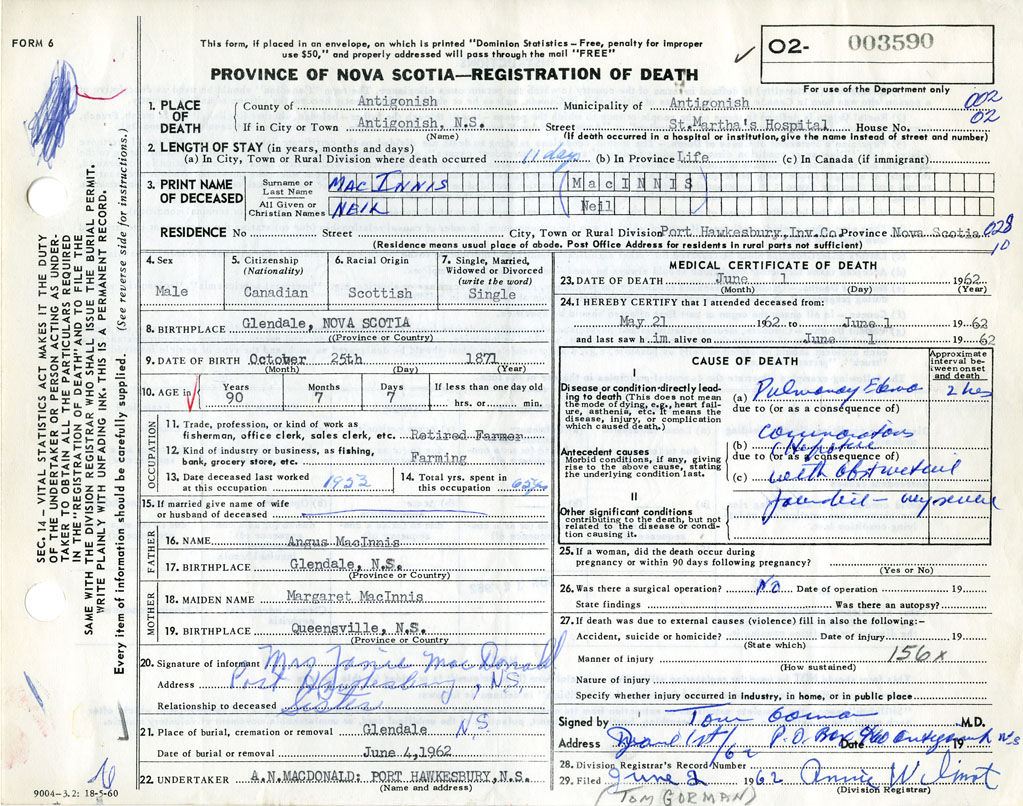 FORM 6
This form, if placed in an envelope, on which is printed "Dominion Statistics – Free, penalty for improper
use $50," and properly addressed will pass through the mail "FREE"
O2- 003590
For use of the Department only
PROVINCE OF NOVA SCOTIA—REGISTRATION OF DEATH
SEC. 14 – VITAL STATISTICS ACT MAKES IT THE DUTY
OF THE UNDERTAKER OR PERSON ACTING AS UNDER-
TAKER TO OBTAIN ALL THE PARTICULARS REQUIRED
IN THE "REGISTRATION OF DEATH" AND TO FILE THE
SAME WITH THE DIVISION REGISTRAR WHO SHALL ISSUE THE BURIAL PERMIT.
WRITE PLAINLY WITH UNFADING INK. THIS IS A PERMANENT RECORD.
Every item of information should be carefully supplied. (See reverse side for instructions.)
1. PLACE OF DEATH
County of Antigonish Municipality of Antigonish 002
If in City or Town Antigonish, N.S. Street St. Martha's Hospital House No. 02
(Name) (If death occurred in a hospital or institution, give the name instead of street and number)
2. LENGTH OF STAY (in years, months and days)
(a) In City, Town or Rural Division where death occurred 11 day (b) In Province Life (c) In Canada (if immigrant)
3. PRINT NAME OF DECEASED
Surname or Last Name MACINNIS (MacINNIS)
All Given or Christian Names NEIL (Neil)
RESIDENCE No Street City, Town or Rural Division Port Hawkesbury, Inv. Co Province Nova Scotia 028
10
(Residence means usual place of abode. Post Office Address for residents in rural parts not sufficient)
4. Sex
Male
5. Citizenship
(Nationality)
Canadian
6. Racial Origin
Scottish
7. Single, Married,
Widowed or Divorced
(write the word)
Single
8. BIRTHPLACE Glendale, NOVA SCOTIA
((Province or Country)
9. DATE OF BIRTH October 25th 1871
(Month) (Day) (Year)
10. AGE in
Years Months Days If less than one day old
90 7 7 hrs. or min.
OCCUPATION
11. Trade, profession, or kind of work as
fisherman, office clerk, sales clerk, etc. Retired Farmer
12. Kind of industry or business, as fishing,
bank, grocery store, etc. Farming
13. Date deceased last worked
at this occupation 1953
14. Total yrs. spent in
this occupation
15. If married give name of wife
or husband of deceased
FATHER
16. NAME Angus MacInnis
17. BIRTHPLACE Glendale, N.S.
(Province or Country)
MOTHER
18. MAIDEN NAME Margaret MacInnis
19. BIRTHPLACE Queensville, N.S.
(Province or Country
20. Signature of informant Mrs Janie MacDonald
Address Port Hawkesbury, N.S.
Relationship to deceased Sister
21. Place of burial, cremation or removal Glendale N.S.
Date of burial or removal June 4, 1962
22. UNDERTAKER A.N. MACDONALD: PORT HAWKESBURY, N.S.
(Name and address)
9004–3.2: 18-5-60
MEDICAL CERTIFICATE OF DEATH
23. DATE OF DEATH June 1 1962
(Month) (Day) (Year)
24. I HEREBY CERTIFY that I attended deceased from:
May 21 1962 to June 1 1962
and last saw h im. alive on June 1 1962
CAUSE OF DEATH
Approximate
interval be-
tween onset
and death
I
Disease or condition directly lead-
ing to death (This does not mean
the mode of dying, e.g., heart fail-
ure, asthenia, etc. It means the
disease, injury, or complication
which caused death.)
(a) Pulmonary Edema 2 hrs
due to (or as a consequence of)
Antecedent causes
Morbid conditions, if any, giving
rise to the above cause, stating
the underlying condition last.
(b)
due to (or as a consequence of)
(c) with obstructive
II
Other significant conditions
contributing to the death, but not
related to the disease or condi-
tion causing it.
25. If a woman, did the death occur during
pregnancy or within 90 days following pregnancy?
(Yes or No)
26. Was there a surgical operation? NO Date of operation 19
State findings Was there an autopsy?
27. If death was due to external causes (violence) fill in also the following:–
Accident, suicide or homicide? Date of injury 19
(State which)
Manner of injury 156x
(How sustained)
Nature of injury
Specify whether injury occurred in industry, in home, or in public place
Signed by Tom Gorman M.D.
Address P.O. Box 960 Antigonish N.S Date June 1st/62 19
28. Division Registrar's Record Number
29. Filed June 2 1962 Annie Wilmot
(Division Registrar)
(TOM GORMAN)